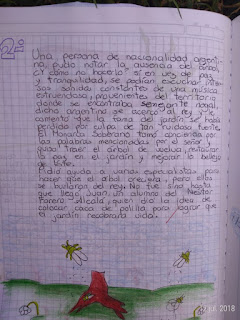 Una persona de nacionalidad argenti-
na, pudo notar la ausencia del árbol,
¿Y cómo no hacerlo? si en vez de paz
y tranquilidad, se podían escuchar inten-
sos sonidos consistentes de una música
estruendosa, provenientes del territorio
donde se encontraba semejante nogal,
dicha argentina se acercó al rey y le
comentó que la fama del jardín se había
perdido por culpa de tan ruidosa fuente.
El Monarca Soberano tomó conciencia de
las palabras mencionadas por el señor y
quiso traer el árbol de vuelta, restaurar
la paz en el jardín y mejorar la belleza
de
Pidió ayuda a varios especialistas para
hacer que el árbol creciera, pero ellos
se burlaron del rey. No fue sino hasta
que llegó Juan, un alumno del Néstor
Forero Alcalá, quien dio la idea de
colocar caca de polilla para lograr que
el jardín recobrara vida.
2018